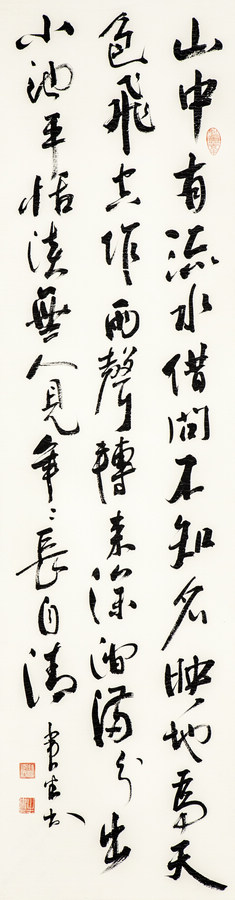 山中有流水借問不知名映地為天
色飛空作雨聲轉来深澗滿分出
小池平恬淡無人見年〻長自清